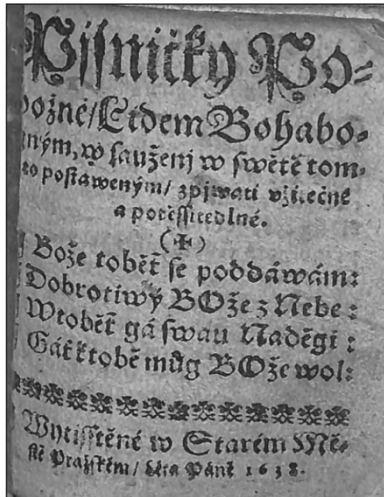 Pjsničky Po-
božné/Lidem Bohabo-
ným, w sauženj w swětě tom-
to postaweným/ zpjwati vžitečné
a potěssitedlné.
(✠)
Bože tobět se poddáwám:
Dobrotiwý BOže z Nebe:
W tobět gá swau Naděgi:
Gáť k tobě můg BOže wol:
Wytisstěné w Starém Mě-
stě Pražském/ Léta Páně 1638.